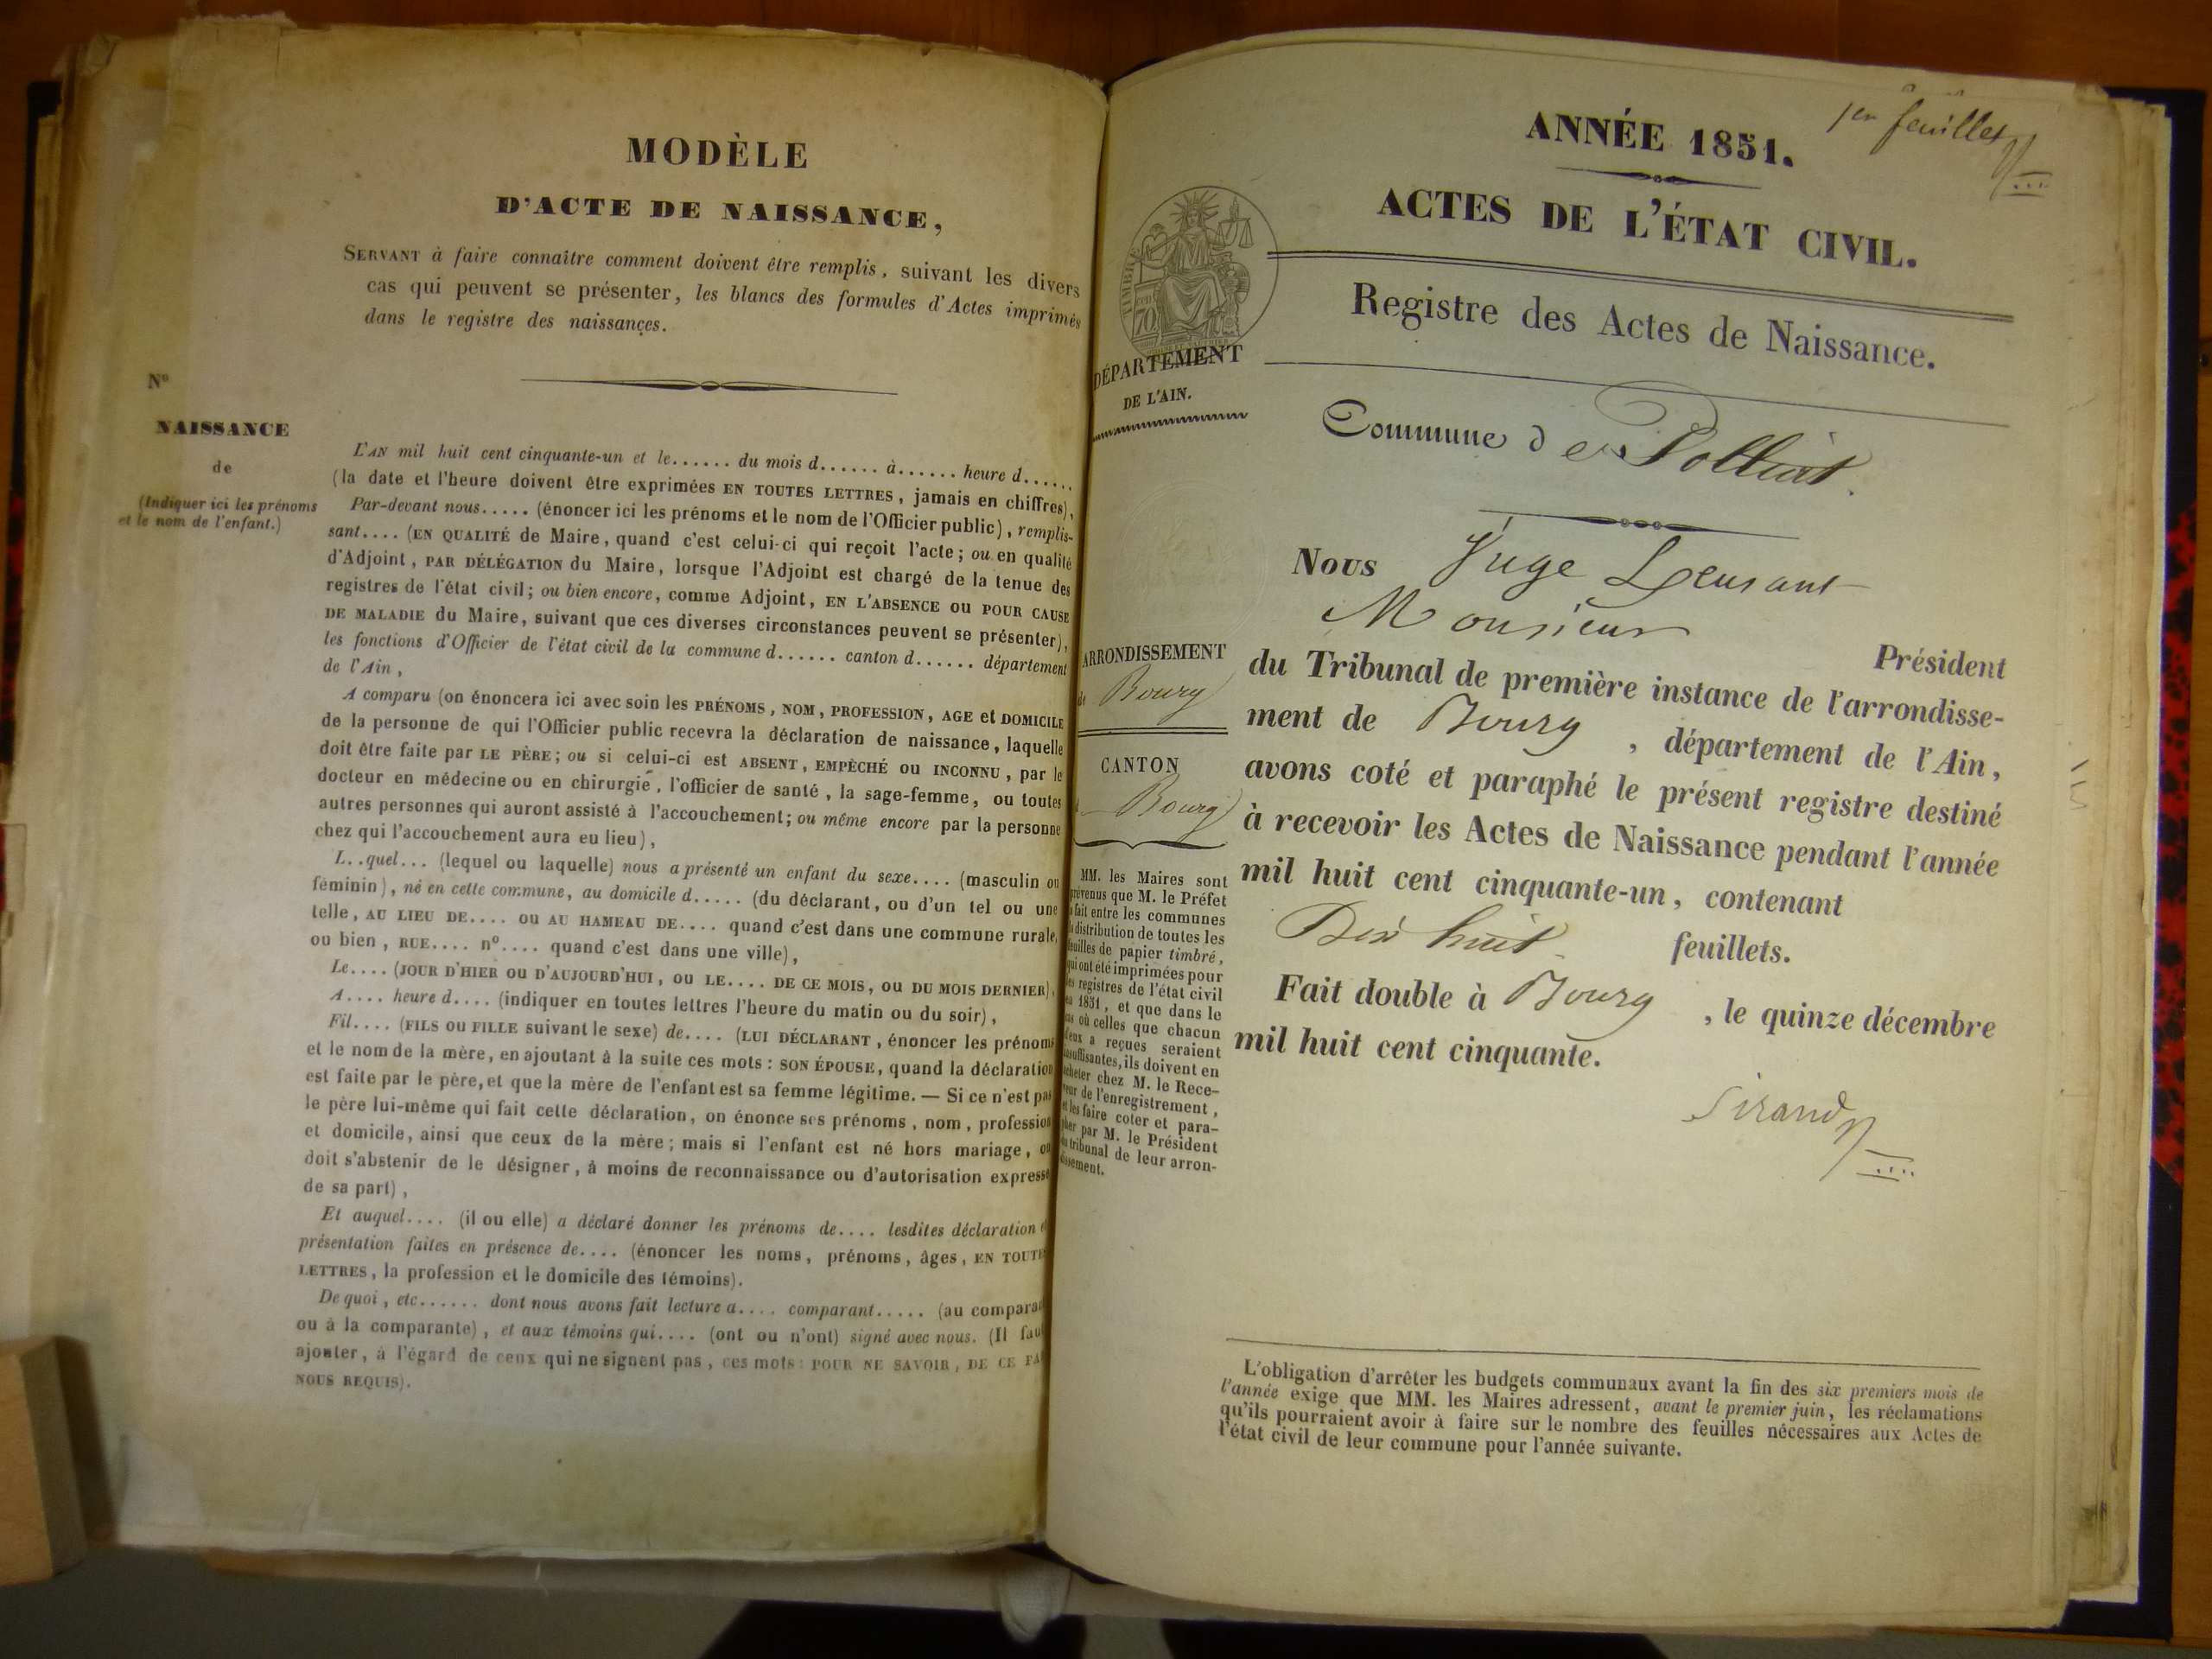 MODÈLE
D'ACTE DE NAISSANCE,
SERVANT à faire connaître comment doivent être remplis, suivant les divers
cas qui peuvent se présenter, les blancs des formules d'Actes imprimés
dans le registre des naissances.
N°
NAISSANCE
de
(Indiquer ici les prénoms
et le nom de l'enfant.)
L'AN mil huit cent cinquante-un et le...... du mois d...... à...... heure d......
(la date et l'heure doivent être exprimées EN TOUTES LETTRES, jamais en chiffres),
Par-devant nous..... (énoncer ici les prénoms et le nom de l'Officier public), remplis-
sant.... (EN QUALITÉ de Maire, quand c'est celui-ci qui reçoit l'acte; ou en qualité
d'Adjoint, PAR DÉLÉGATION du Maire, lorsque l'Adjoint est chargé de la tenue des
registres de l'état civil; ou bien encore, comme Adjoint, EN L'ABSENCE OU POUR CAUSE
DE MALADIE du Maire, suivant que ces diverses circonstances peuvent se présenter),
les fonctions d'Officier de l'état civil de la commune d...... canton d...... département
de l'Ain,
A comparu (on énoncera ici avec soin les PRÉNOMS, NOM, PROFESSION, AGE et DOMICILE
de la personne de qui l'Officier public recevra la déclaration de naissance, laquelle
doit être faite par LE PÈRE; ou si celui-ci est ABSENT, EMPÊCHÉ OU INCONNU, par le
docteur en médecine ou en chirurgie, l'officier de santé, la sage-femme, ou toutes
autres personnes qui auront assisté à l'accouchement; ou même encore par la personne
chez qui l'accouchement aura eu lieu),
L..quel... (lequel ou laquelle) nous a présenté un enfant du sexe.... (masculin ou
féminin), né en cette commune, au domicile d..... (du déclarant, ou d'un tel ou une
telle, AU LIEU DE.... OU AU HAMEAU DE.... quand c'est dans une commune rurale,
ou bien, RUE.... n°.... quand c'est dans une ville),
Le.... (JOUR D'HIER OU D'AUJOURD'HUI, OU LE.... DE CE MOIS, OU DU MOIS DERNIER),
A.... heure d.... (indiquer en toutes lettres l'heure du matin ou du soir),
Fil.... (FILS OU FILLE suivant le sexe) de.... (LUI DÉCLARANT, énoncer les prénoms
et le nom de la mère, en ajoutant à la suite ces mots: SON ÉPOUSE, quand la déclaration
est faite par le père, et que la mère de l'enfant est sa femme légitime. — Si ce n'est pas
le père lui-même qui fait cette déclaration, on énonce ses prénoms, nom, profession
et domicile, ainsi que ceux de la mère; mais si l'enfant est né hors mariage, on
doit s'abstenir de le désigner, à moins de reconnaissance ou d'autorisation expresse
de sa part),
Et auquel.... (il ou elle) a déclaré donner les prénoms de.... lesdites déclaration
présentation faites en présence de.... (énoncer les noms, prénoms, âges, EN TOUTES
LETTRES, la profession et le domicile des témoins).
De quoi, etc...... dont nous avons fait lecture a.... comparant..... (au comparant
ou à la comparante), et aux témoins qui.... (ont ou n'ont) signé avec nous. (Il faut
ajouter, à l'égard de ceux qui ne signent pas, ces mots: POUR NE SAVOIR, DE CE FA
NOUS REQUIS).
1er feuillet
ANNÉE 1851.
ACTES DE L'ÉTAT CIVIL.
Registre des Actes de Naissance.
TIMBRE
70
DÉPARTEMENT
DE L'AIN.
Commune de Polliat.
Nous Juge
Monsieur
Président
du Tribunal de première instance de l'arrondisse-
ment de Bourg, département de l'Ain,
avons coté et paraphé le présent registre destiné
à recevoir les Actes de Naissance pendant l'année
mil huit cent cinquante-un, contenant
Dix huit feuillets.
Fait double à Bourg, le quinze décembre
mil huit cent cinquante.
Sirand
ARRONDISSEMENT
de Bourg
CANTON
Bourg
MM. les Maires sont
prévenus que M. le Préfet
a fait entre les communes
la distribution de toutes les
feuilles de papier timbré,
qui ont été imprimées pour
les registres de l'état civil
en 1851, et que dans le
cas où celles que chacun
d'eux a reçues seraient
insuffisantes, ils doivent en
acheter chez M. le Rece-
veur de l'enregistrement,
et les faire coter et para-
pher par M. le Président
du tribunal de leur arron-
dissement.
L'obligation d'arrêter les budgets communaux avant la fin des six premiers mois de
l'année exige que MM. les Maires adressent, avant le premier juin, les réclamations
qu'ils pourraient avoir à faire sur le nombre des feuilles nécessaires aux Actes de
l'état civil de leur commune pour l'année suivante.